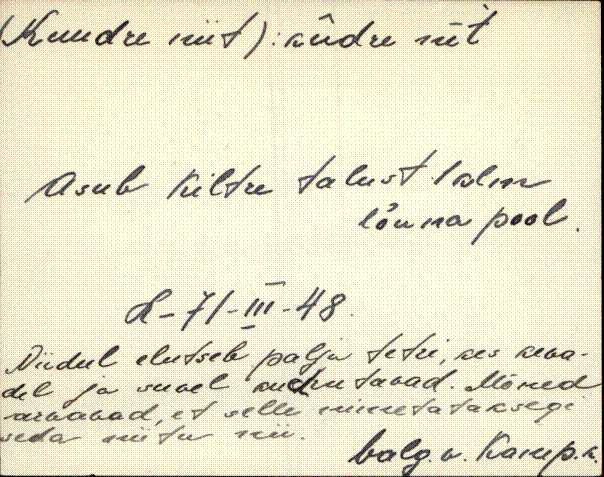 (Kuudre niit): kūdre nīt
Asub Kiltre talust 1 klm
lõuna pool.
L-71-III-48.
Niidul elutseb palju tetri, kes keva-
del ja suvel kudrutavad. Mõned
arvavad, et selle nimetataksegi
seda niitu nii.
Valg.v. Kamp.k.